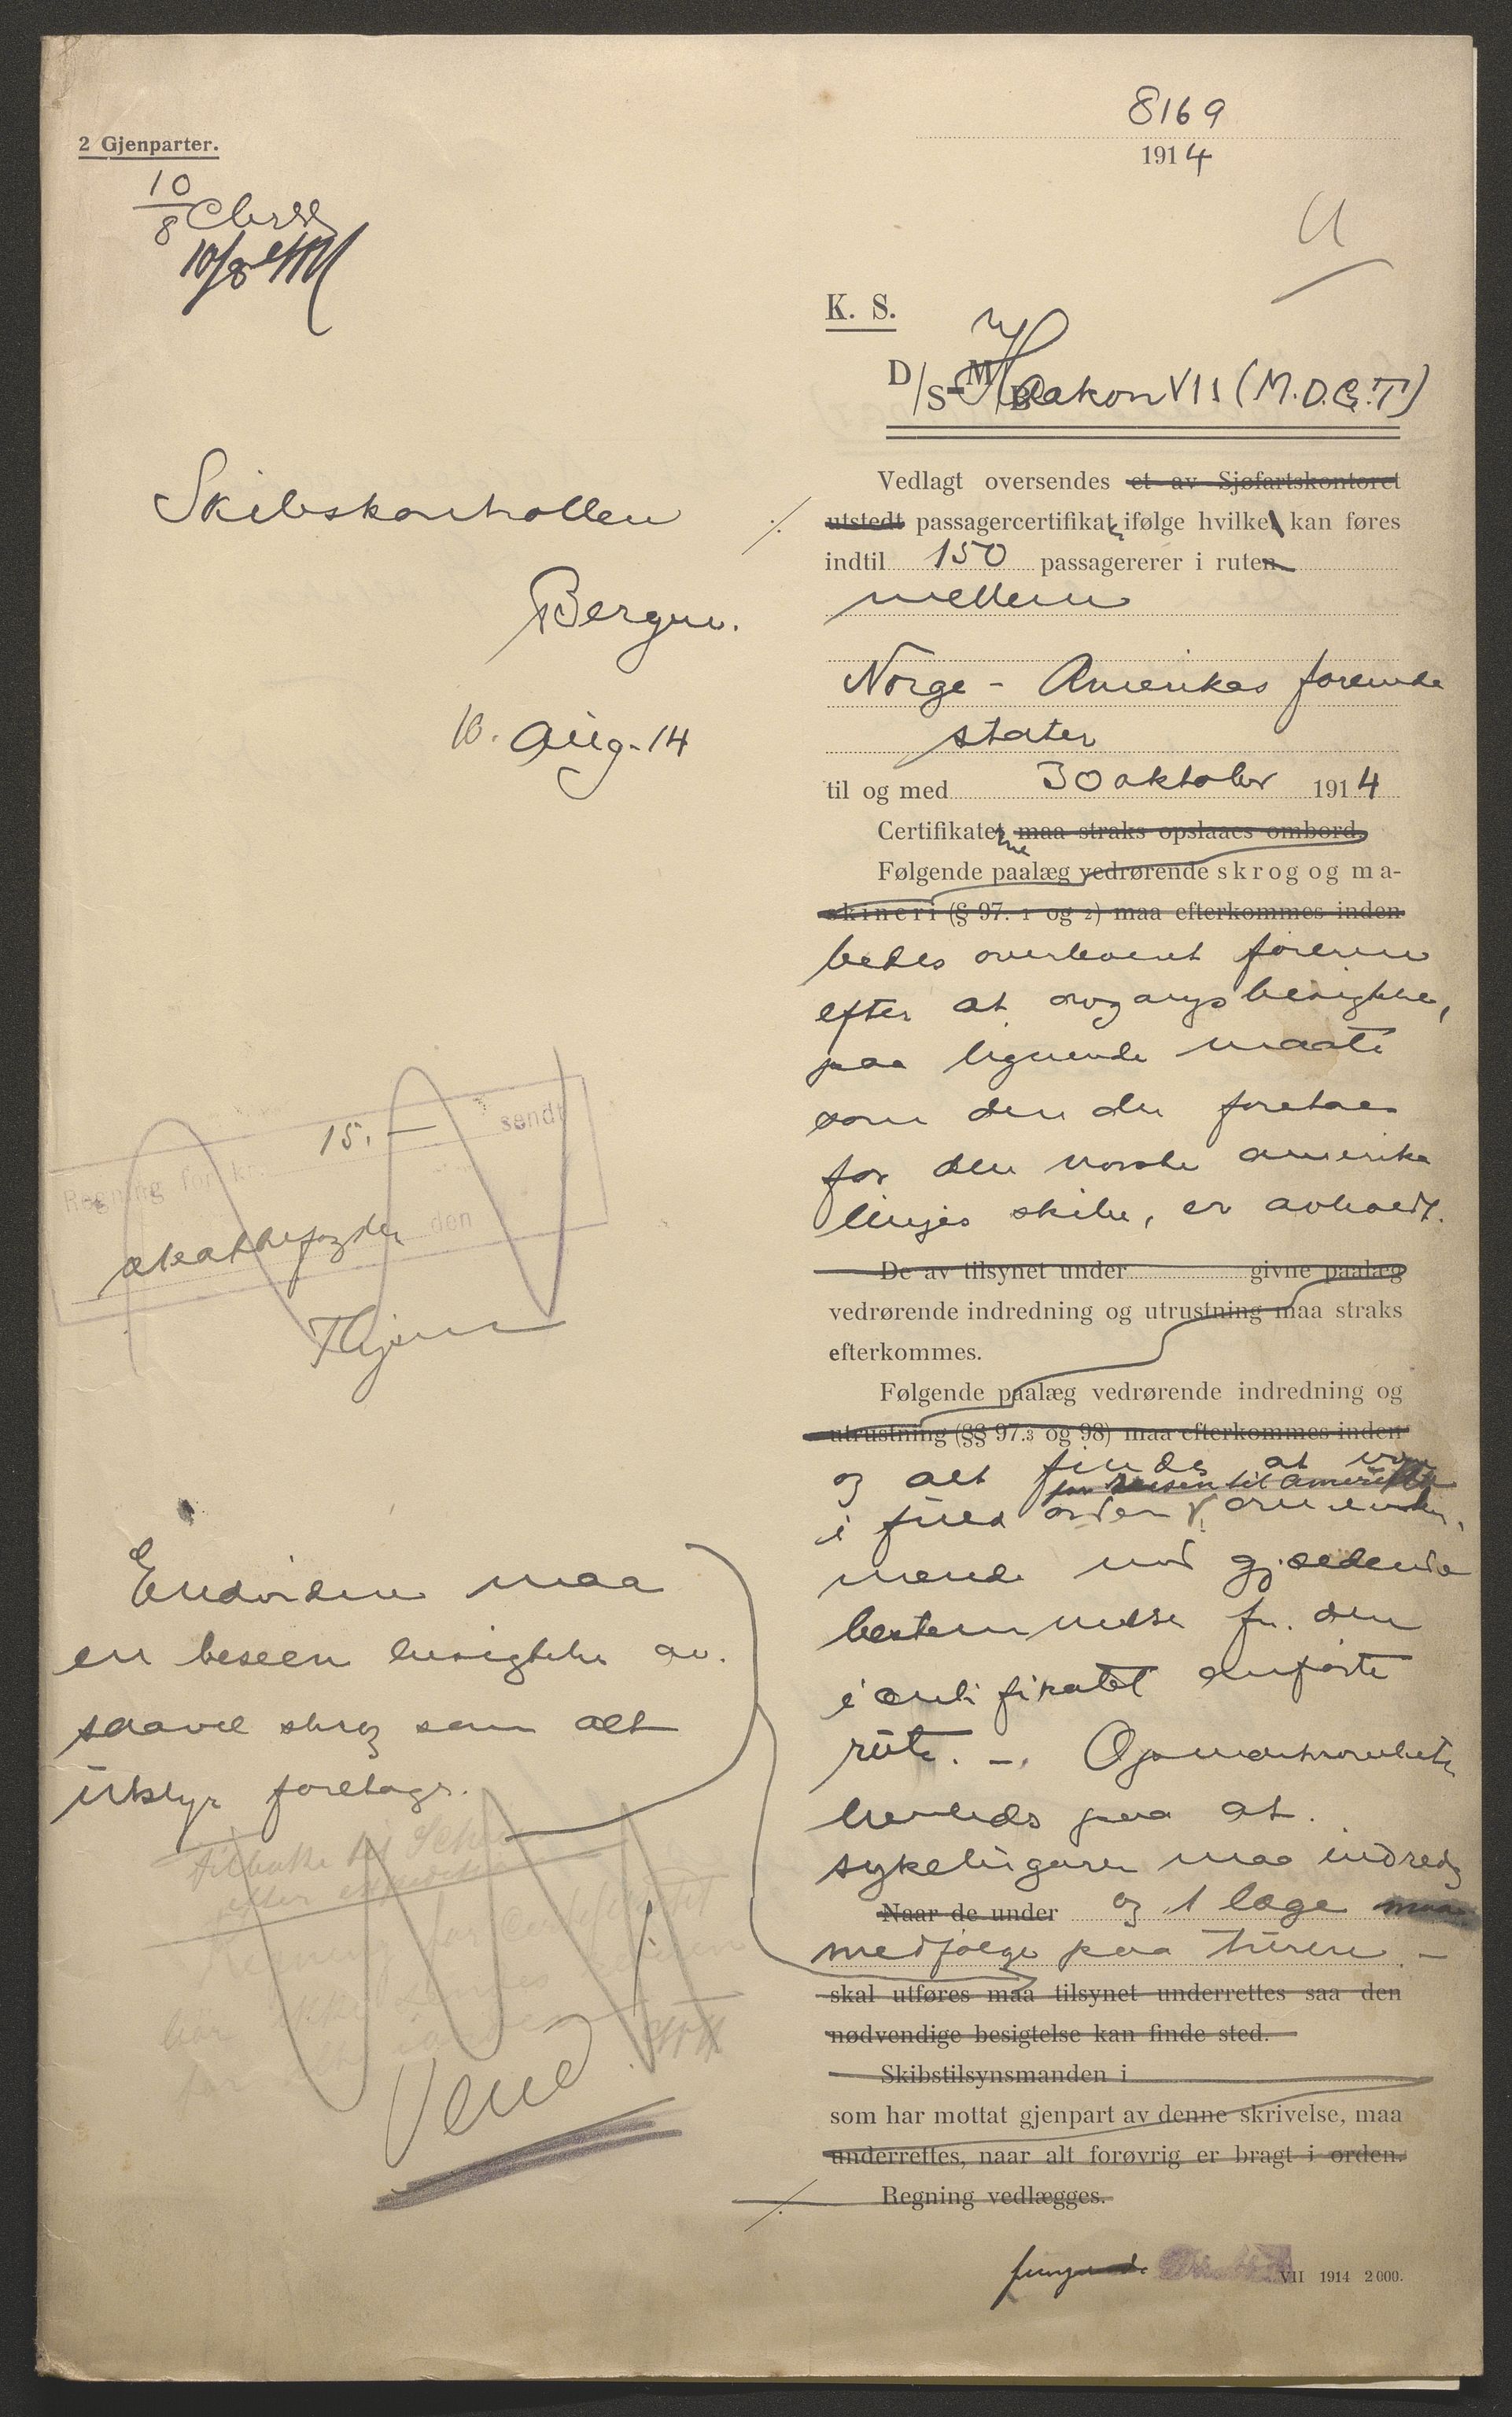 2 Gjenparter.
8169
1914
10/8
10/8
U
K. S.
D/S M/B Haakon VII (M.D.G.T)
Skibskontrollen
Bergen.
10. Aug. 14
Vedlagt oversendes et av Sjøfartskontoret
utstedt passagercertifikat ifølge hvilket kan føres
indtil 150 passagererer i ruten
mellem
Norge - Amerikas forenede
stater
til og med 30 oktober 1914
Certifikatet maa straks opslaaes ombord.
ne
Følgende paalæg vedrørende skrog og ma-
skineri (§ 97. 1 og 2) maa efterkommes inden
bedes overlevert føreren
efter at avgangsbesigtelse,
paa lignende maate
som den der foretaes
for den norske amerika
linjes skibe, er avholdt.
De av tilsynet under givne paalæg
vedrørende indredning og utrustning maa straks
efterkommes.
Følgende paalæg vedrørende indredning og
utrustning (§§ 97.3 og 98) maa efterkommes inden
og alt findes at være
for reisen til Amerika
i fuld orden
mende med gjældende
bestemmelse for den
i certifikatet anførte
rute. -. Opmerksomheten
henledes paa at
sykelugarer maa indredes
Naar de under og 1 læge maa
medfølge paa turen. -
skal utføres maa tilsynet underrettes saa den
nødvendige besigtelse kan finde sted.
Skibstilsynsmanden i
som har mottat gjenpart av denne skrivelse, maa
underrettes, naar alt forøvrig er bragt i orden.
Regning vedlægges.
VII 1914 2000.
Regning for kr. 15.- sendt
den
Endvidere maa
en besigtelse av
saavel skrog som alt
utstyr foretages.
Tilbake til
efter
Regning for certifikatet
Vend!